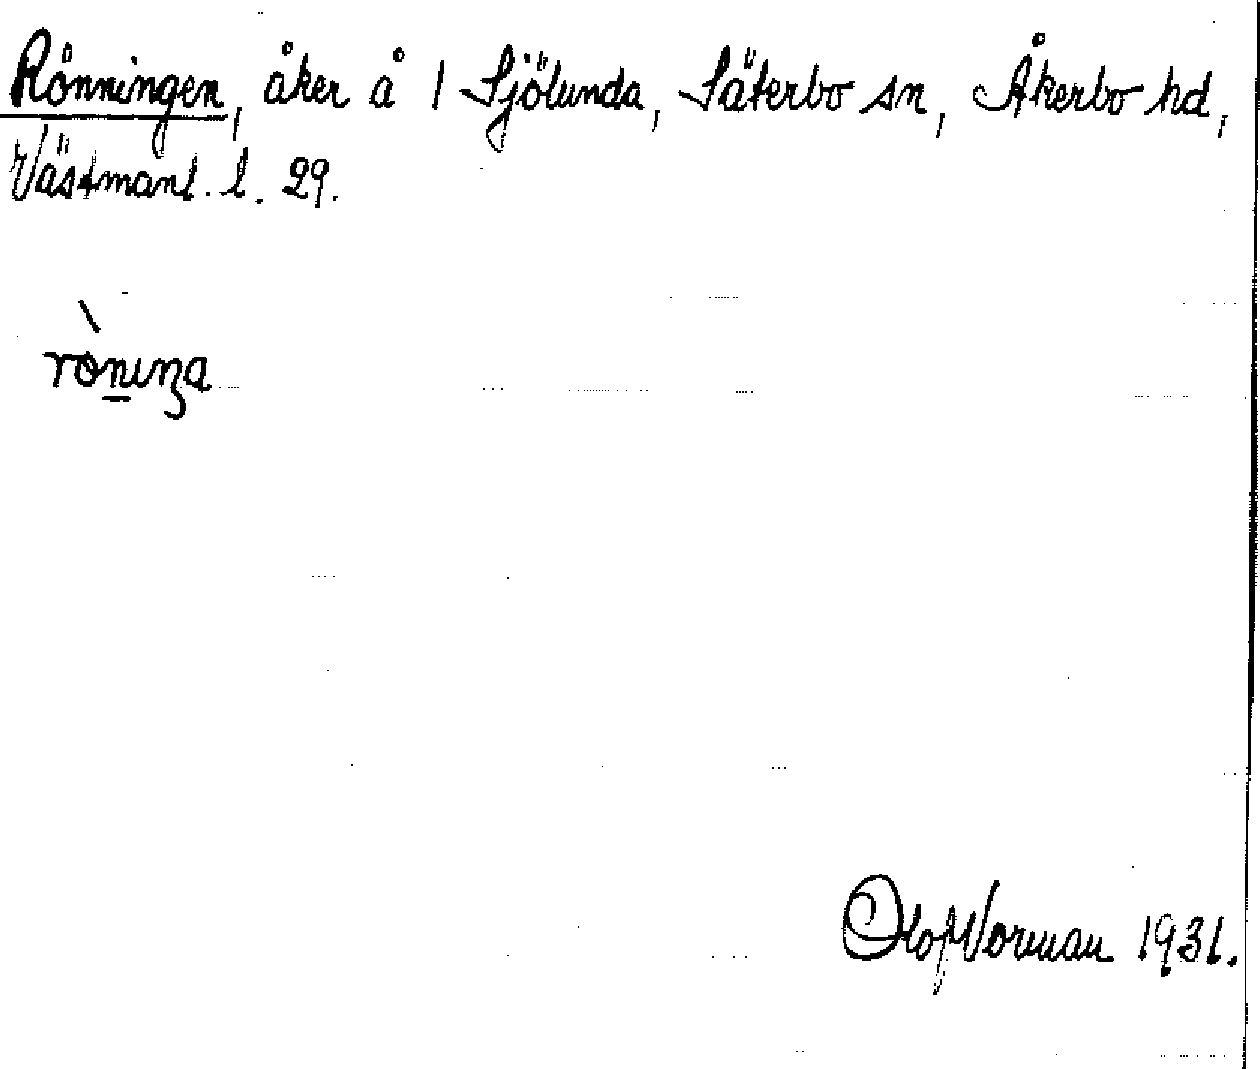 Rönningen, åker å 1 Sjölunda, Säterbo sn, Åkerbo hd,
Västmanl. l. 29.
rò̀n̲ıŋa
Olof Norman 1931.